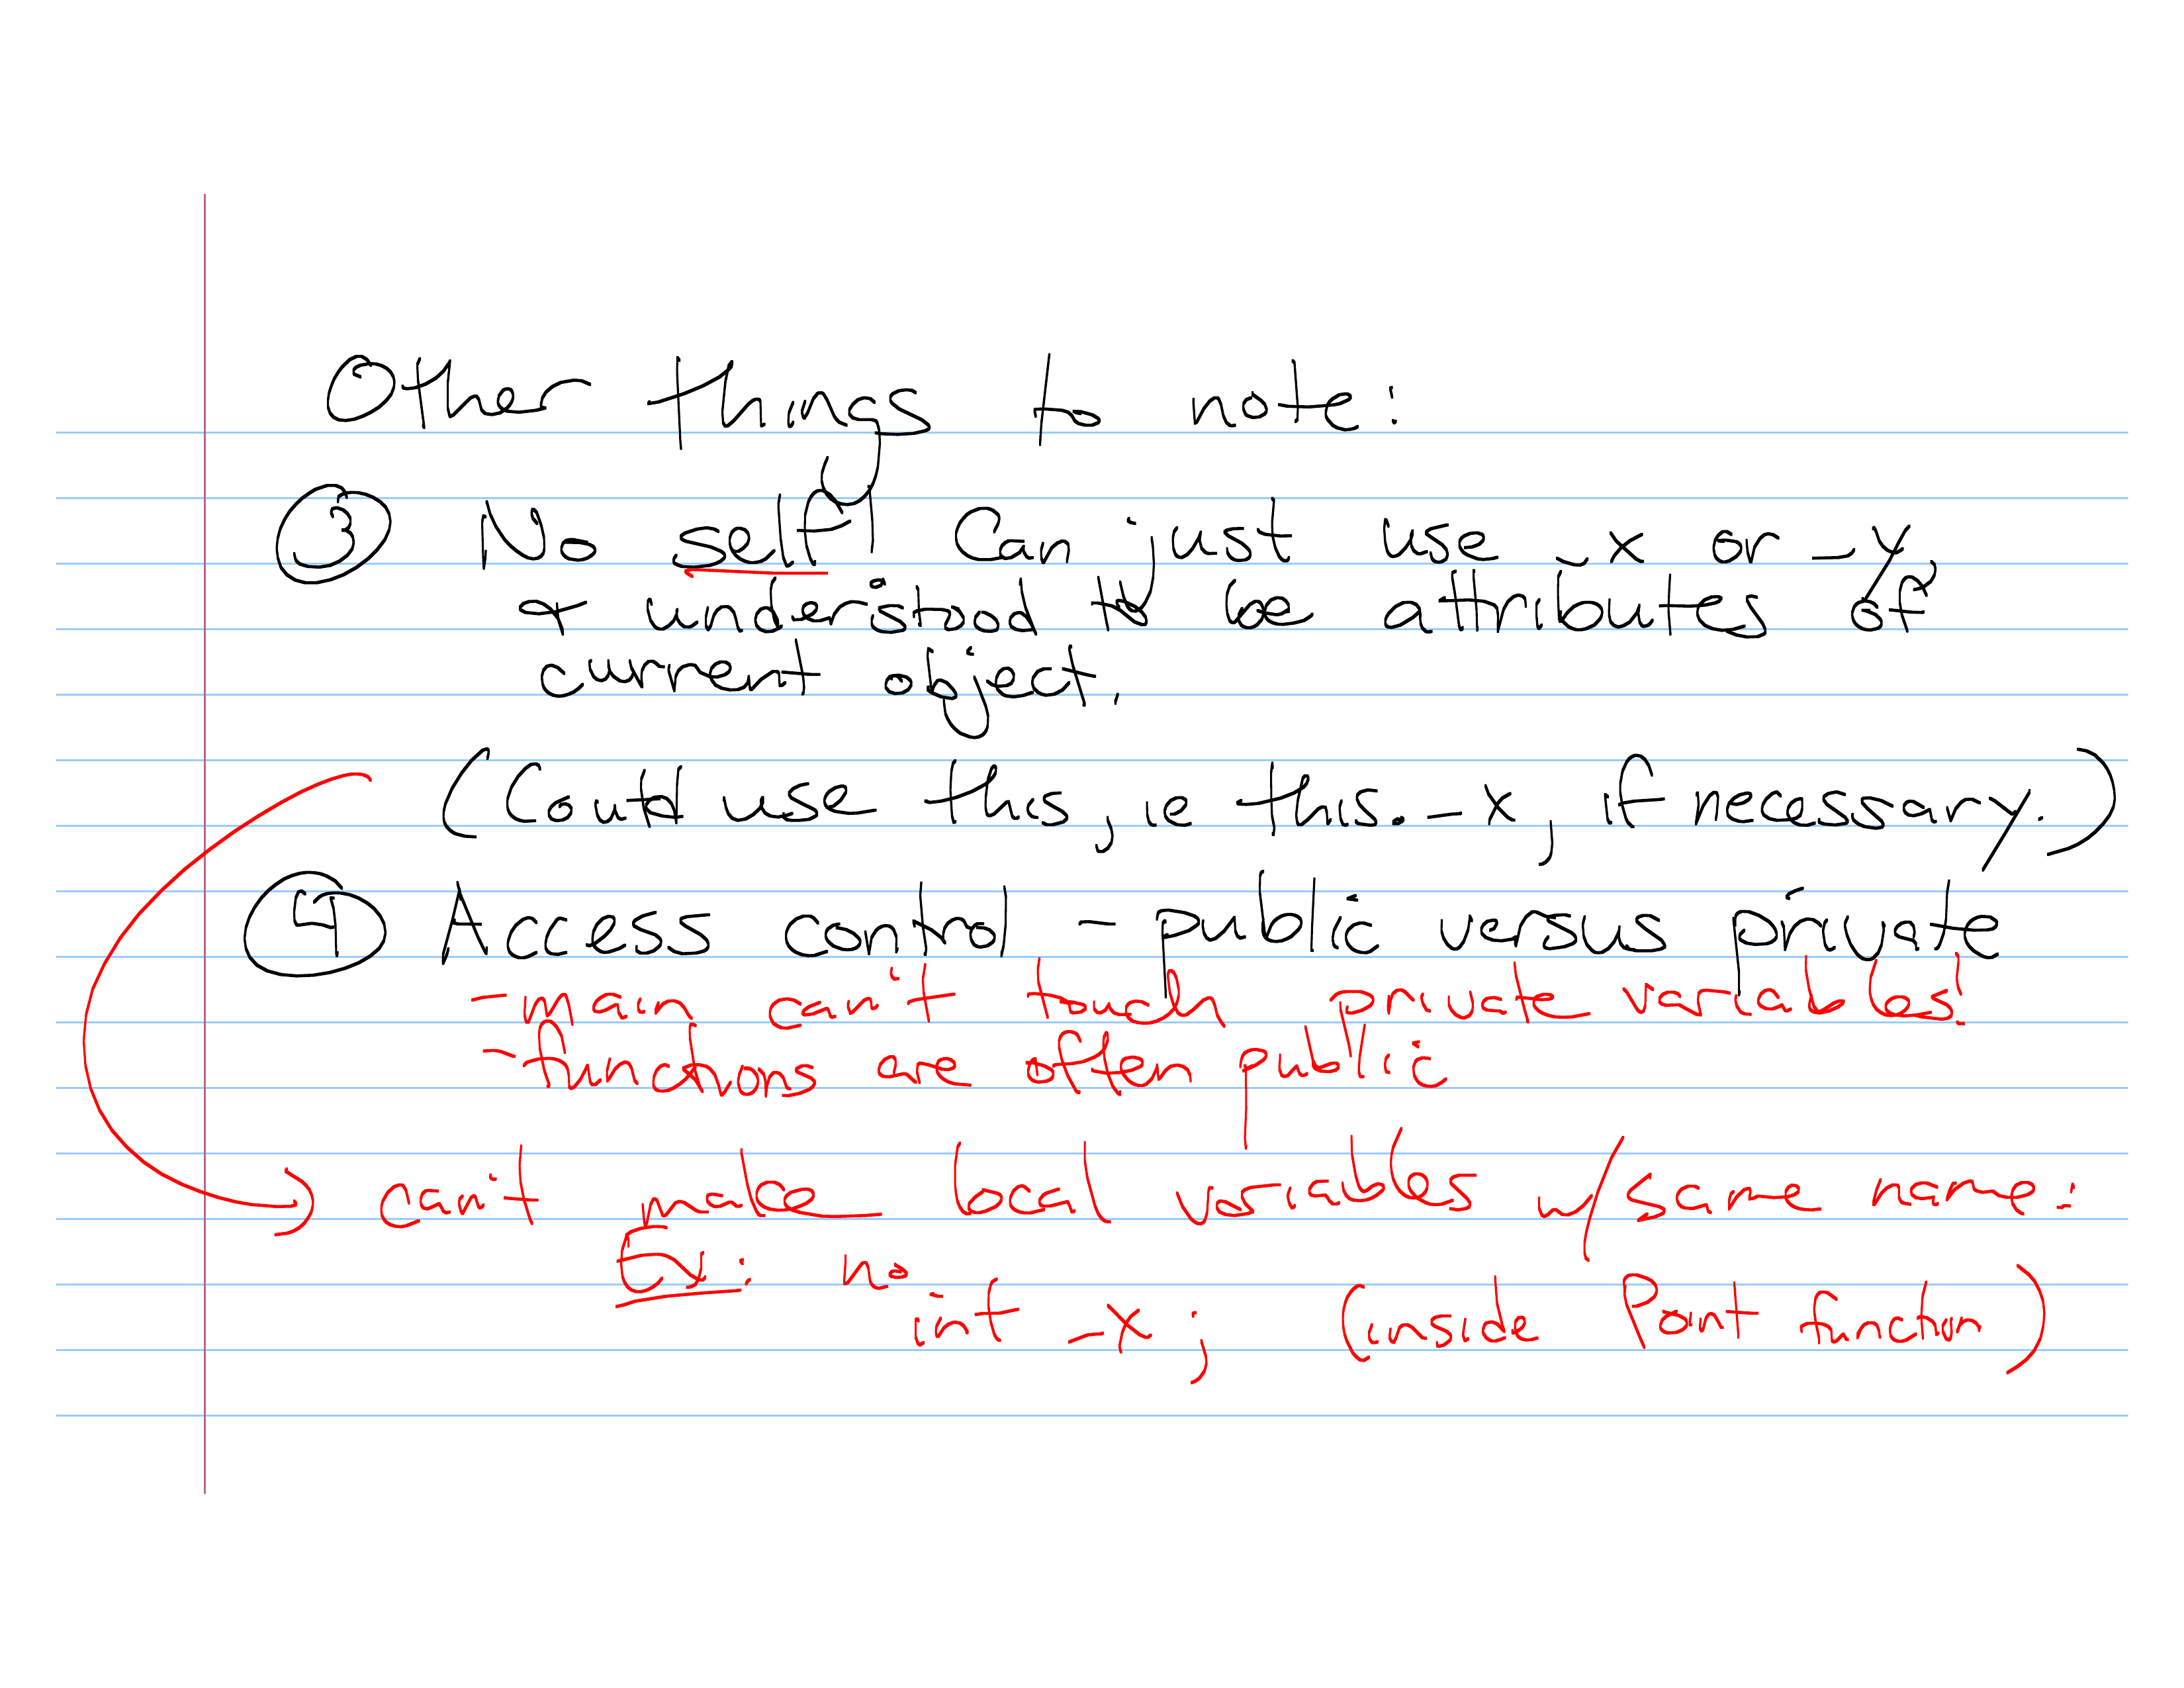 Other things to note:
③ No self! Can just use _x or _y,
+ understood to be attributes of
current object.
(Could use this, ie this._x, if necessary.)
④ Access control - public versus private
- main can't touch private variables!
- functions are often public
→ can't make local variables w/same name:
Ex: no
int _x; (inside Point function)